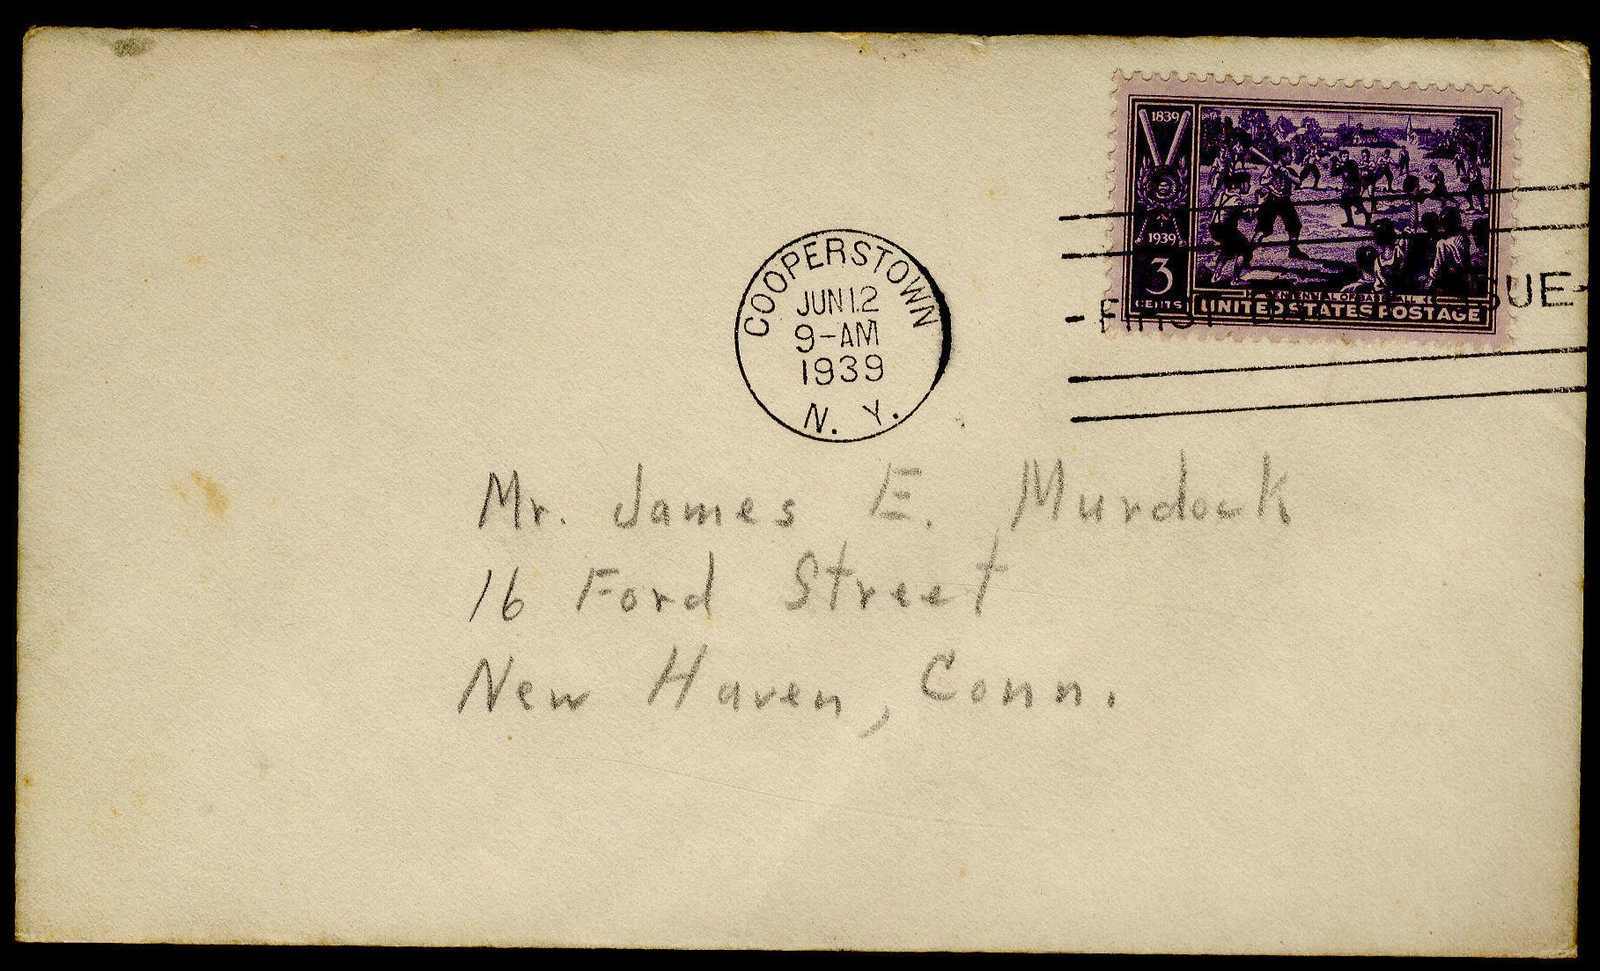 1839
1939
3
CENTS
CENTENNIAL OF BASEBALL
UNITED STATES POSTAGE
COOPERSTOWN
JUN 12
9-AM
1939
N. Y.
FIRST DAY OF ISSUE
Mr. James E. Murdock
16 Ford Street
New Haven, Conn.